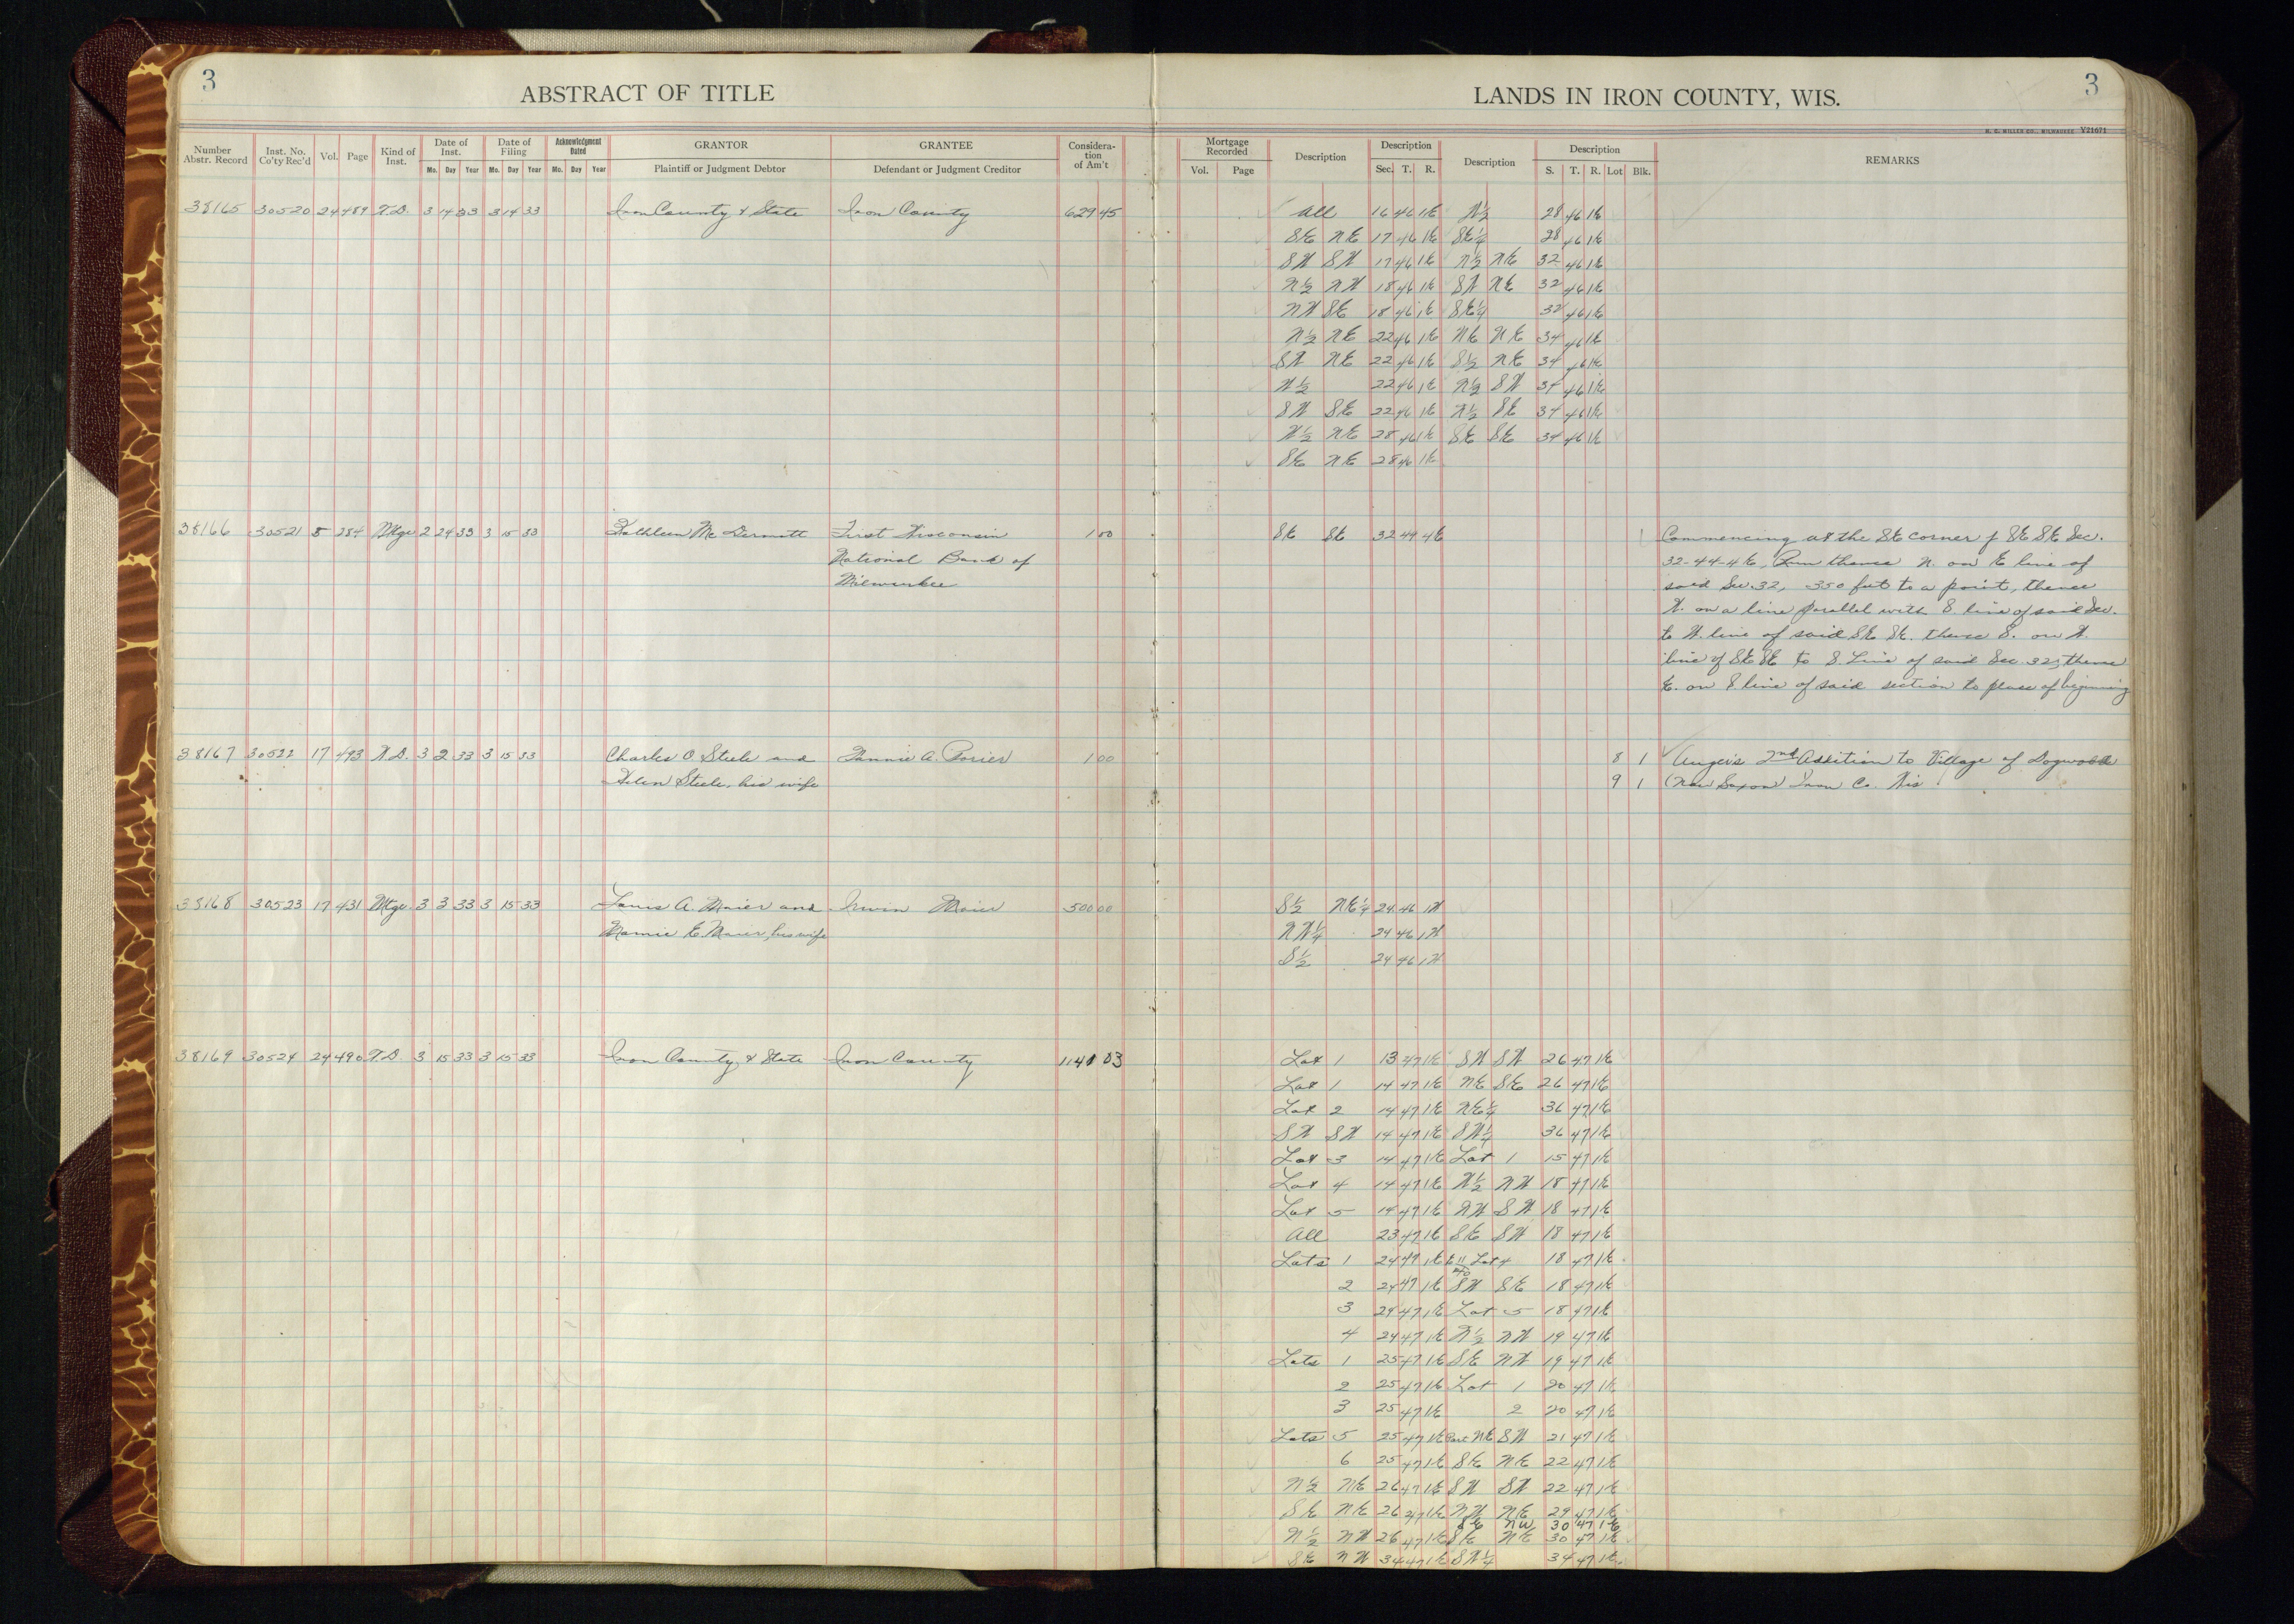 3
ABSTRACT OF TITLE
LANDS IN IRON COUNTY, WIS.
3
H. C. MILLER CO., MILWAUKEE Y21671
Number Abstr. Record Inst. No. Co'ty Rec'd Vol. Page Kind of Inst. Date of Inst. Mo. Day Year Date of Filing Mo. Day Year Acknowledgment Dated Mo. Day Year GRANTOR Plaintiff or Judgment Debtor GRANTEE Defendant or Judgment Creditor Considera-tion of Am't
Mortgage Recorded Vol. Page Description Description Sec. T. R. Description Description S. T. R. Lot Blk. REMARKS
38165 30520 24 489 T.D. 3 14 33 3 14 33 Iron County & State Iron County 629 45 All 16 46 1E W½ 28 46 1E
SE NE 17 46 1E SE¼ 28 46 1E
SW SW 17 46 1E N½ NE 32 46 1E
N½ NW 18 46 1E SW NE 32 46 1E
NW SE 18 46 1E SE¼ 32 46 1E
N½ NE 22 46 1E NE NE 34 46 1E
SW NE 22 46 1E S½ NE 34 46 1E
W½ 22 46 1E N½ SW 34 46 1E
SW SE 22 46 1E N½ SE 34 46 1E
W½ NE 28 46 1E SE SE 34 46 1E
SE NE 28 46 1E
38166 30521 8 284 Mtge 2 24 33 3 15 33 Kathleen Mc Dermott First Wisconsin 1 00 SE SE 32 44 4E Commencing at the SE corner of SE SE Sec.
National Bank of 32-44-4E, Run thence N. on E line of
Milwaukee said Sec. 32, 350 feet to a point, thence
W. on a line parallel with S line of said Sec.
to W. line of said SE SE. thence S. on W.
line of SE SE to S. Line of said Sec. 32, thence
E. on S line of said section to place of beginning
38167 30522 17 493 W.D. 3 2 33 3 15 33 Charles O. Steele and Fannie A. Porier 1 00 8 1 Auger's 2nd Addition to Village of Dogwood
Helen Steele, his wife 9 1 (Now Saxon) Iron Co. Wis
38168 30523 17 431 Mtge. 3 3 33 3 15 33 Louis A. Maier and Irwin Maier 500 00 S½ NE¼ 24 46 1W
Mamie E. Maier, his wife NW¼ 24 46 1W
S½ 24 46 1W
38169 30524 24 490 T.D. 3 15 33 3 15 33 Iron County & State Iron County 1140 03 Lot 1 13 47 1E SW SW 26 47 1E
Lot 1 14 47 1E NE SE 26 47 1E
Lot 2 14 47 1E NE¼ 36 47 1E
SW SW 14 47 1E SW¼ 36 47 1E
Lot 3 14 47 1E Lot 1 15 47 1E
Lot 4 14 47 1E W½ NW 18 47 1E
Lot 5 14 47 1E NW SW 18 47 1E
All 23 47 1E SE SW 18 47 1E
Lots 1 24 47 1E Lot 4 18 47 1E
2 24 47 1E SW SE 18 47 1E
3 24 47 1E Lot 5 18 47 1E
4 24 47 1E W½ NW 19 47 1E
Lots 1 25 47 1E SE NW 19 47 1E
2 25 47 1E Lot 1 20 47 1E
3 25 47 1E 2 20 47 1E
Lots 5 25 47 1E Part NE SW 21 47 1E
6 25 47 1E SE NE 22 47 1E
N½ NE 26 47 1E SW SW 22 47 1E
SE NE 26 47 1E NW NE 29 47 1E
SE NW 30 47 1E
N½ NW 26 47 1E SE NE 30 47 1E
SE NW 34 47 1E SW¼ 34 47 1E